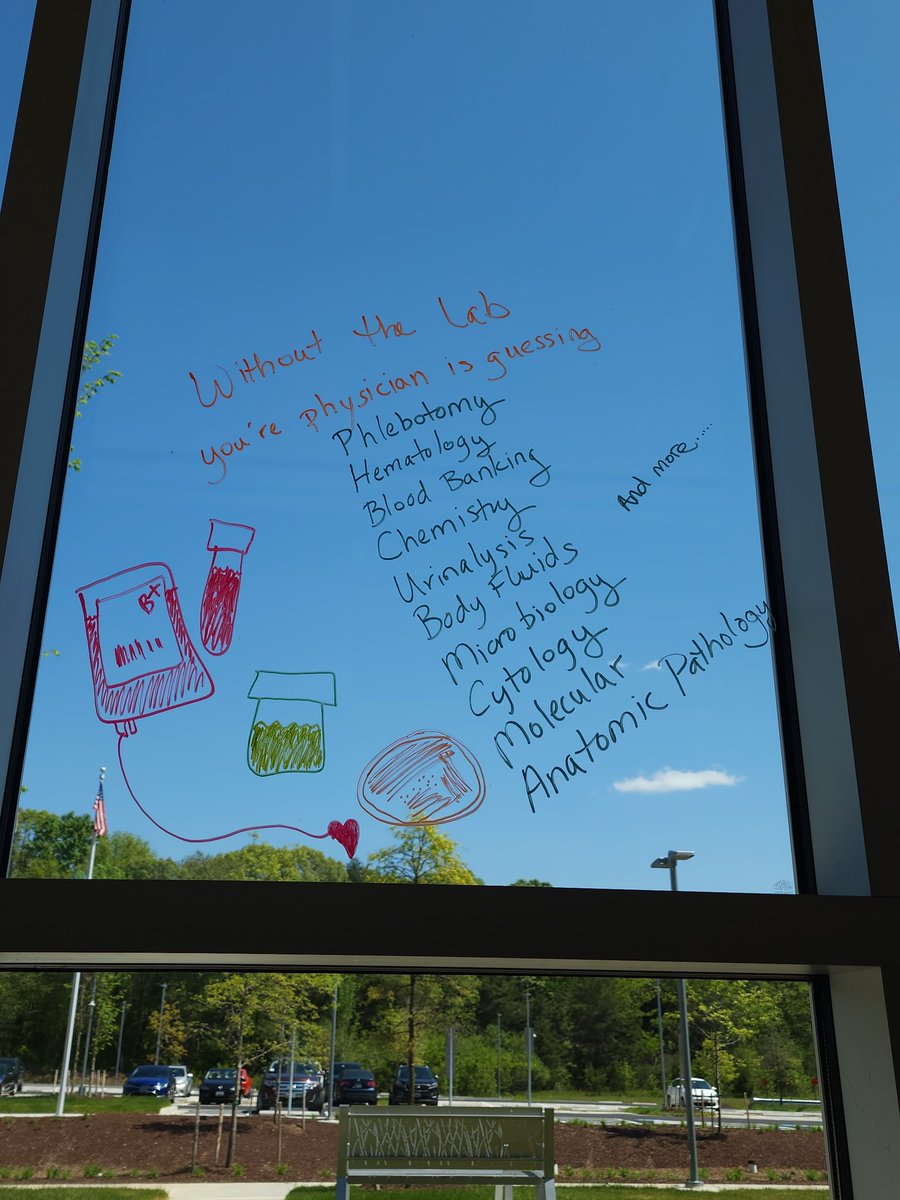 Without the Lab
you're physician is guessing
Phlebotomy
Hematology
Blood Banking
Chemistry
Urinalysis
Body Fluids
Microbiology
Cytology
Molecular
Anatomic Pathology
And more.....
B+